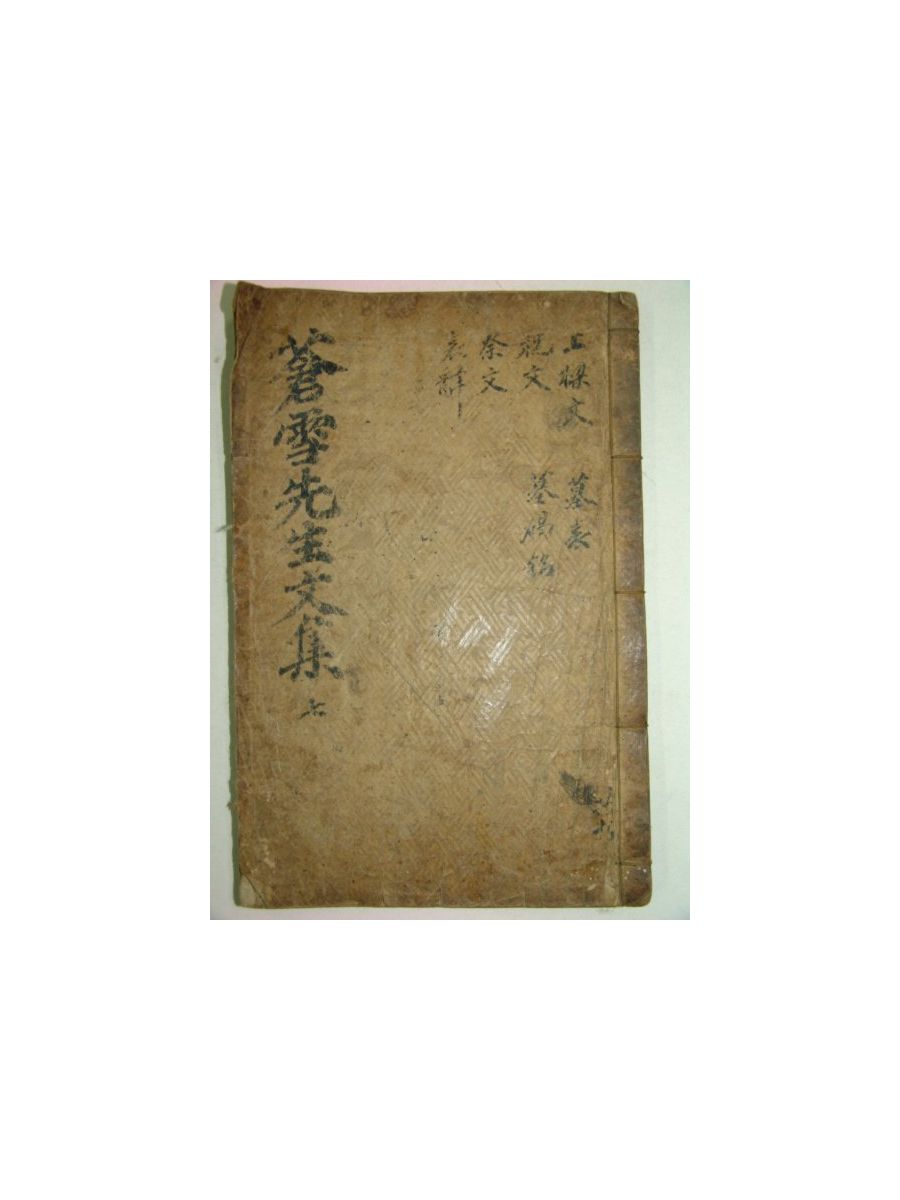 上樑文 墓表
祝文 墓碣銘
祭文
哀辭
蒼雪先生文集 七